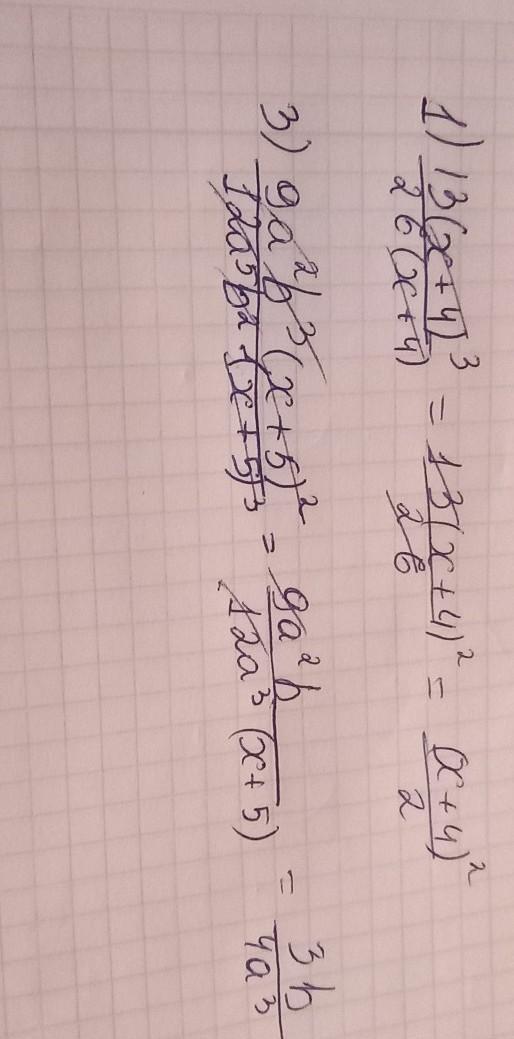 1) 13(x+4)³ / 26(x+4) = 13(x+4)² / 26 = (x+4)² / 2
3) 9a²b³(x+5)² / 12a⁵b²·(x+5)³ = 9a²b / 12a³(x+5) = 3b / 4a³